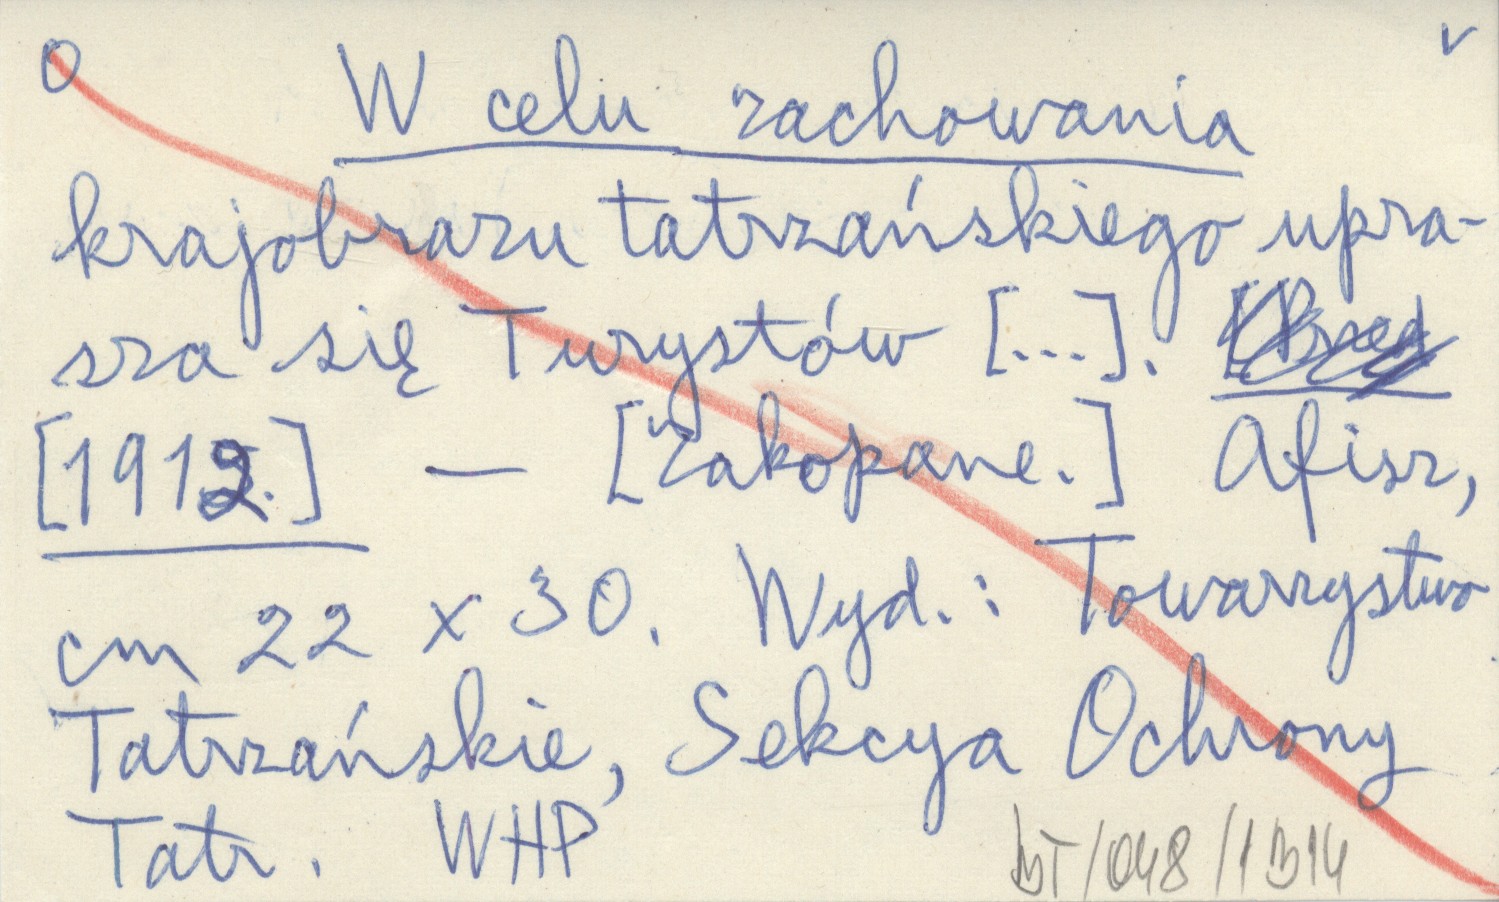 O
v
W celu zachowania
krajobrazu tatrzańskiego upra-
sza się Turystów [...].
[1912.] — [Zakopane.] Afisz,
cm 22 x 30. Wyd.: Towarzystwo
Tatrzańskie, Sekcya Ochrony
Tatr. WHP